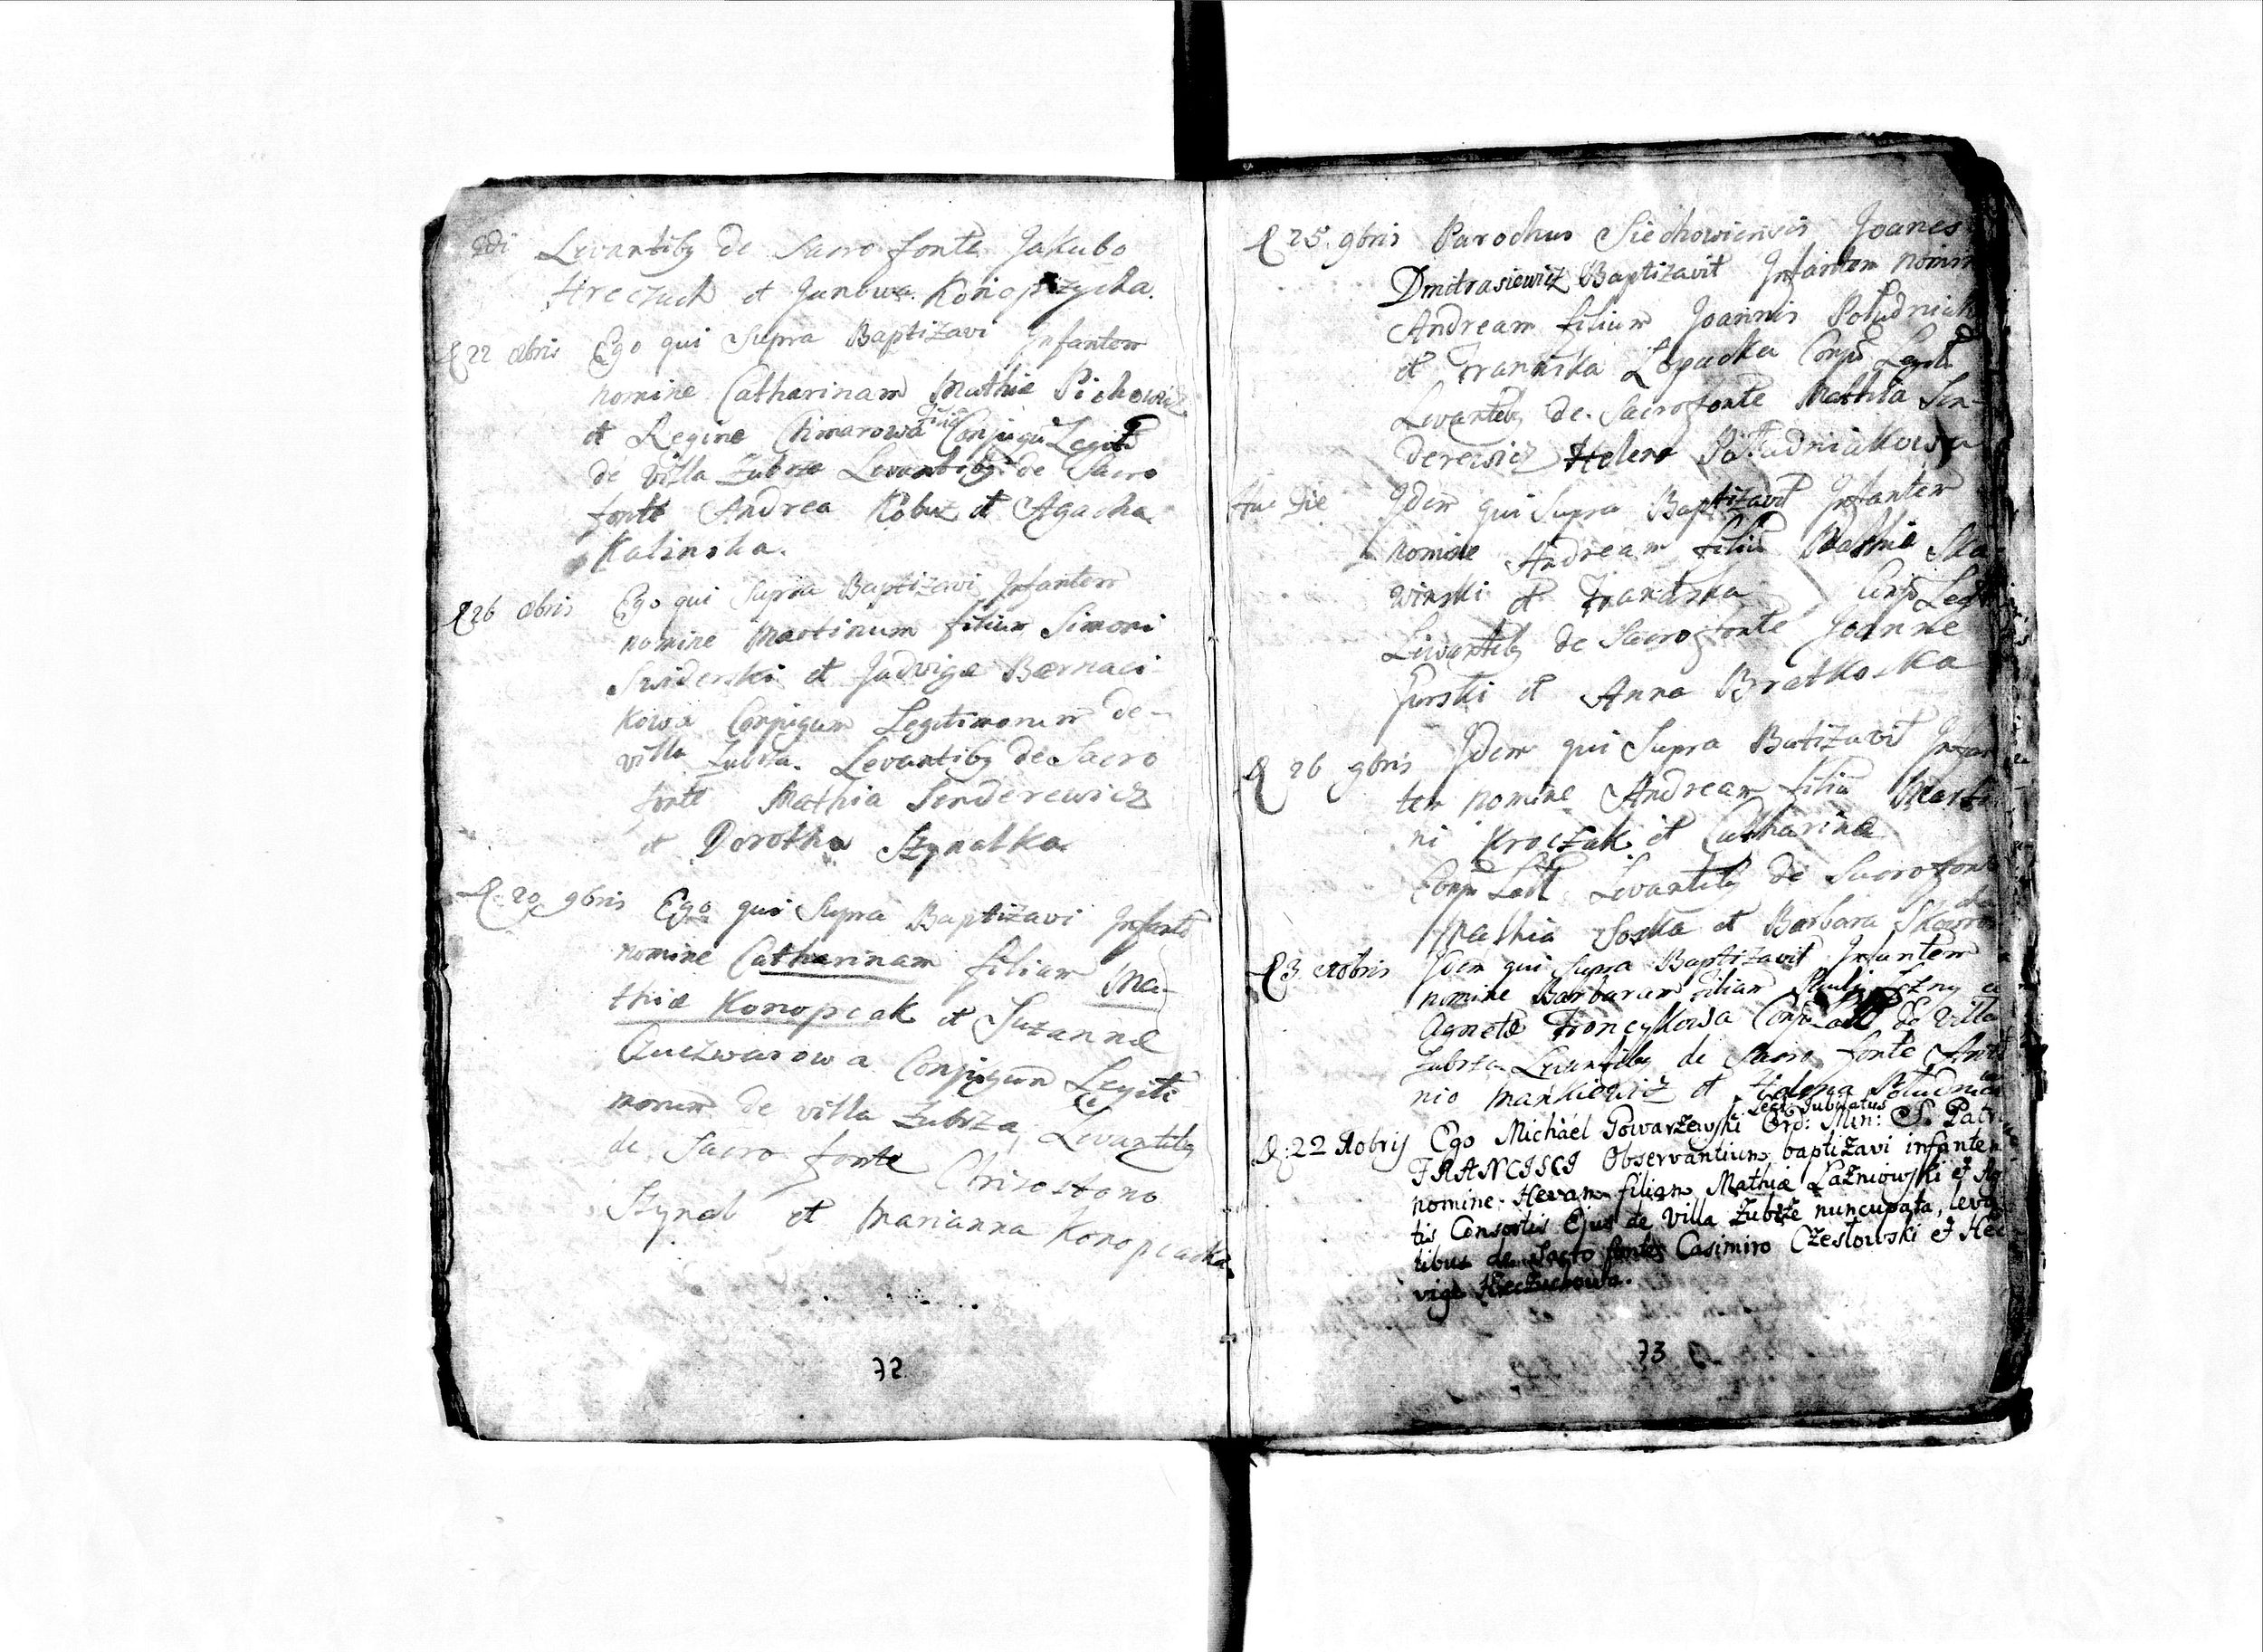 Levantibz de Sacro fonte Jakubo
Hreczuch et Konopizycka.
22 Ego qui Supra Baptizavi Infantem
nomine Catharinam Mathiæ Pichowicz
et Regine Chmarowa Conjugu Legit
de Villa Zubrze Levantibz de Sacro
fonte Andrea Kobuz et Agacha
Kalinska.
26 Ego qui Supra Baptizavi Infantem
nomine Martinum filium Simoni
Swiderski et Jadwigæ Bernaci
kowa Conjugum Legitimorum de-
villa Zubrza. Levantibz de Sacro
fonte Mathia Senderewicz
et Dorotha Szynalka
9bris Ego qui Supra Baptizavi Infante
nomine Catharinam filiam Ma-
thiæ Konopcak et Suzannæ
Conjugum Legiti
morum de villa Zubrza, Levantibz
de Sacro fonte Chrisostono
Szynal et Marianna Konopcacka
72.
25. 9bris Parochus Siechowiensis Joanes
Dmitrasiewicz Baptizavit Infantem nomin
Andream filium Joannis Południak
et Franciska Łopacka Conju Legit
Levantibz de Sacro fonte Mathia Sen-
derewicz Helena Południakowa
Hac Die Idem qui Supra Baptizavit Infantem
nomine Andream filiu Mathiæ Ska
winski et Franciska Conju Legit
Levantibz de Sacro fonte Joanne
Gurski et Anna Bratkoska
26 9bris Idem qui Supra Batizavit Infan
tem nomine Andream filiu Marti
ni Kroczak et Catharinæ
Conju Levantibz de Sacro fonte
Mathia Soska et Barbara Skowron
3 Idem qui Supra Baptizavit Infantem
nomine Barbaram filiam Pauli
Agnetæ Froncykowa Conju de Villa
Zubrza Levantibz de Sacro fonte Anto
nio Mankiewicz et Helena Południa
Lect: Jubilatus
22 Xobris Ego Michäel Gowarzewski Ord: Min: S. Patris
FRANCISCI Observantium baptizavi infantem
nomine Hevam filiam Mathiæ Łazniowski et
tis Consortis Ejus de Villa Zubrze nuncupata, levan
tibus de Sacro fonte Casimiro Czestowski et Hed
vige Hreczuchowa.
73